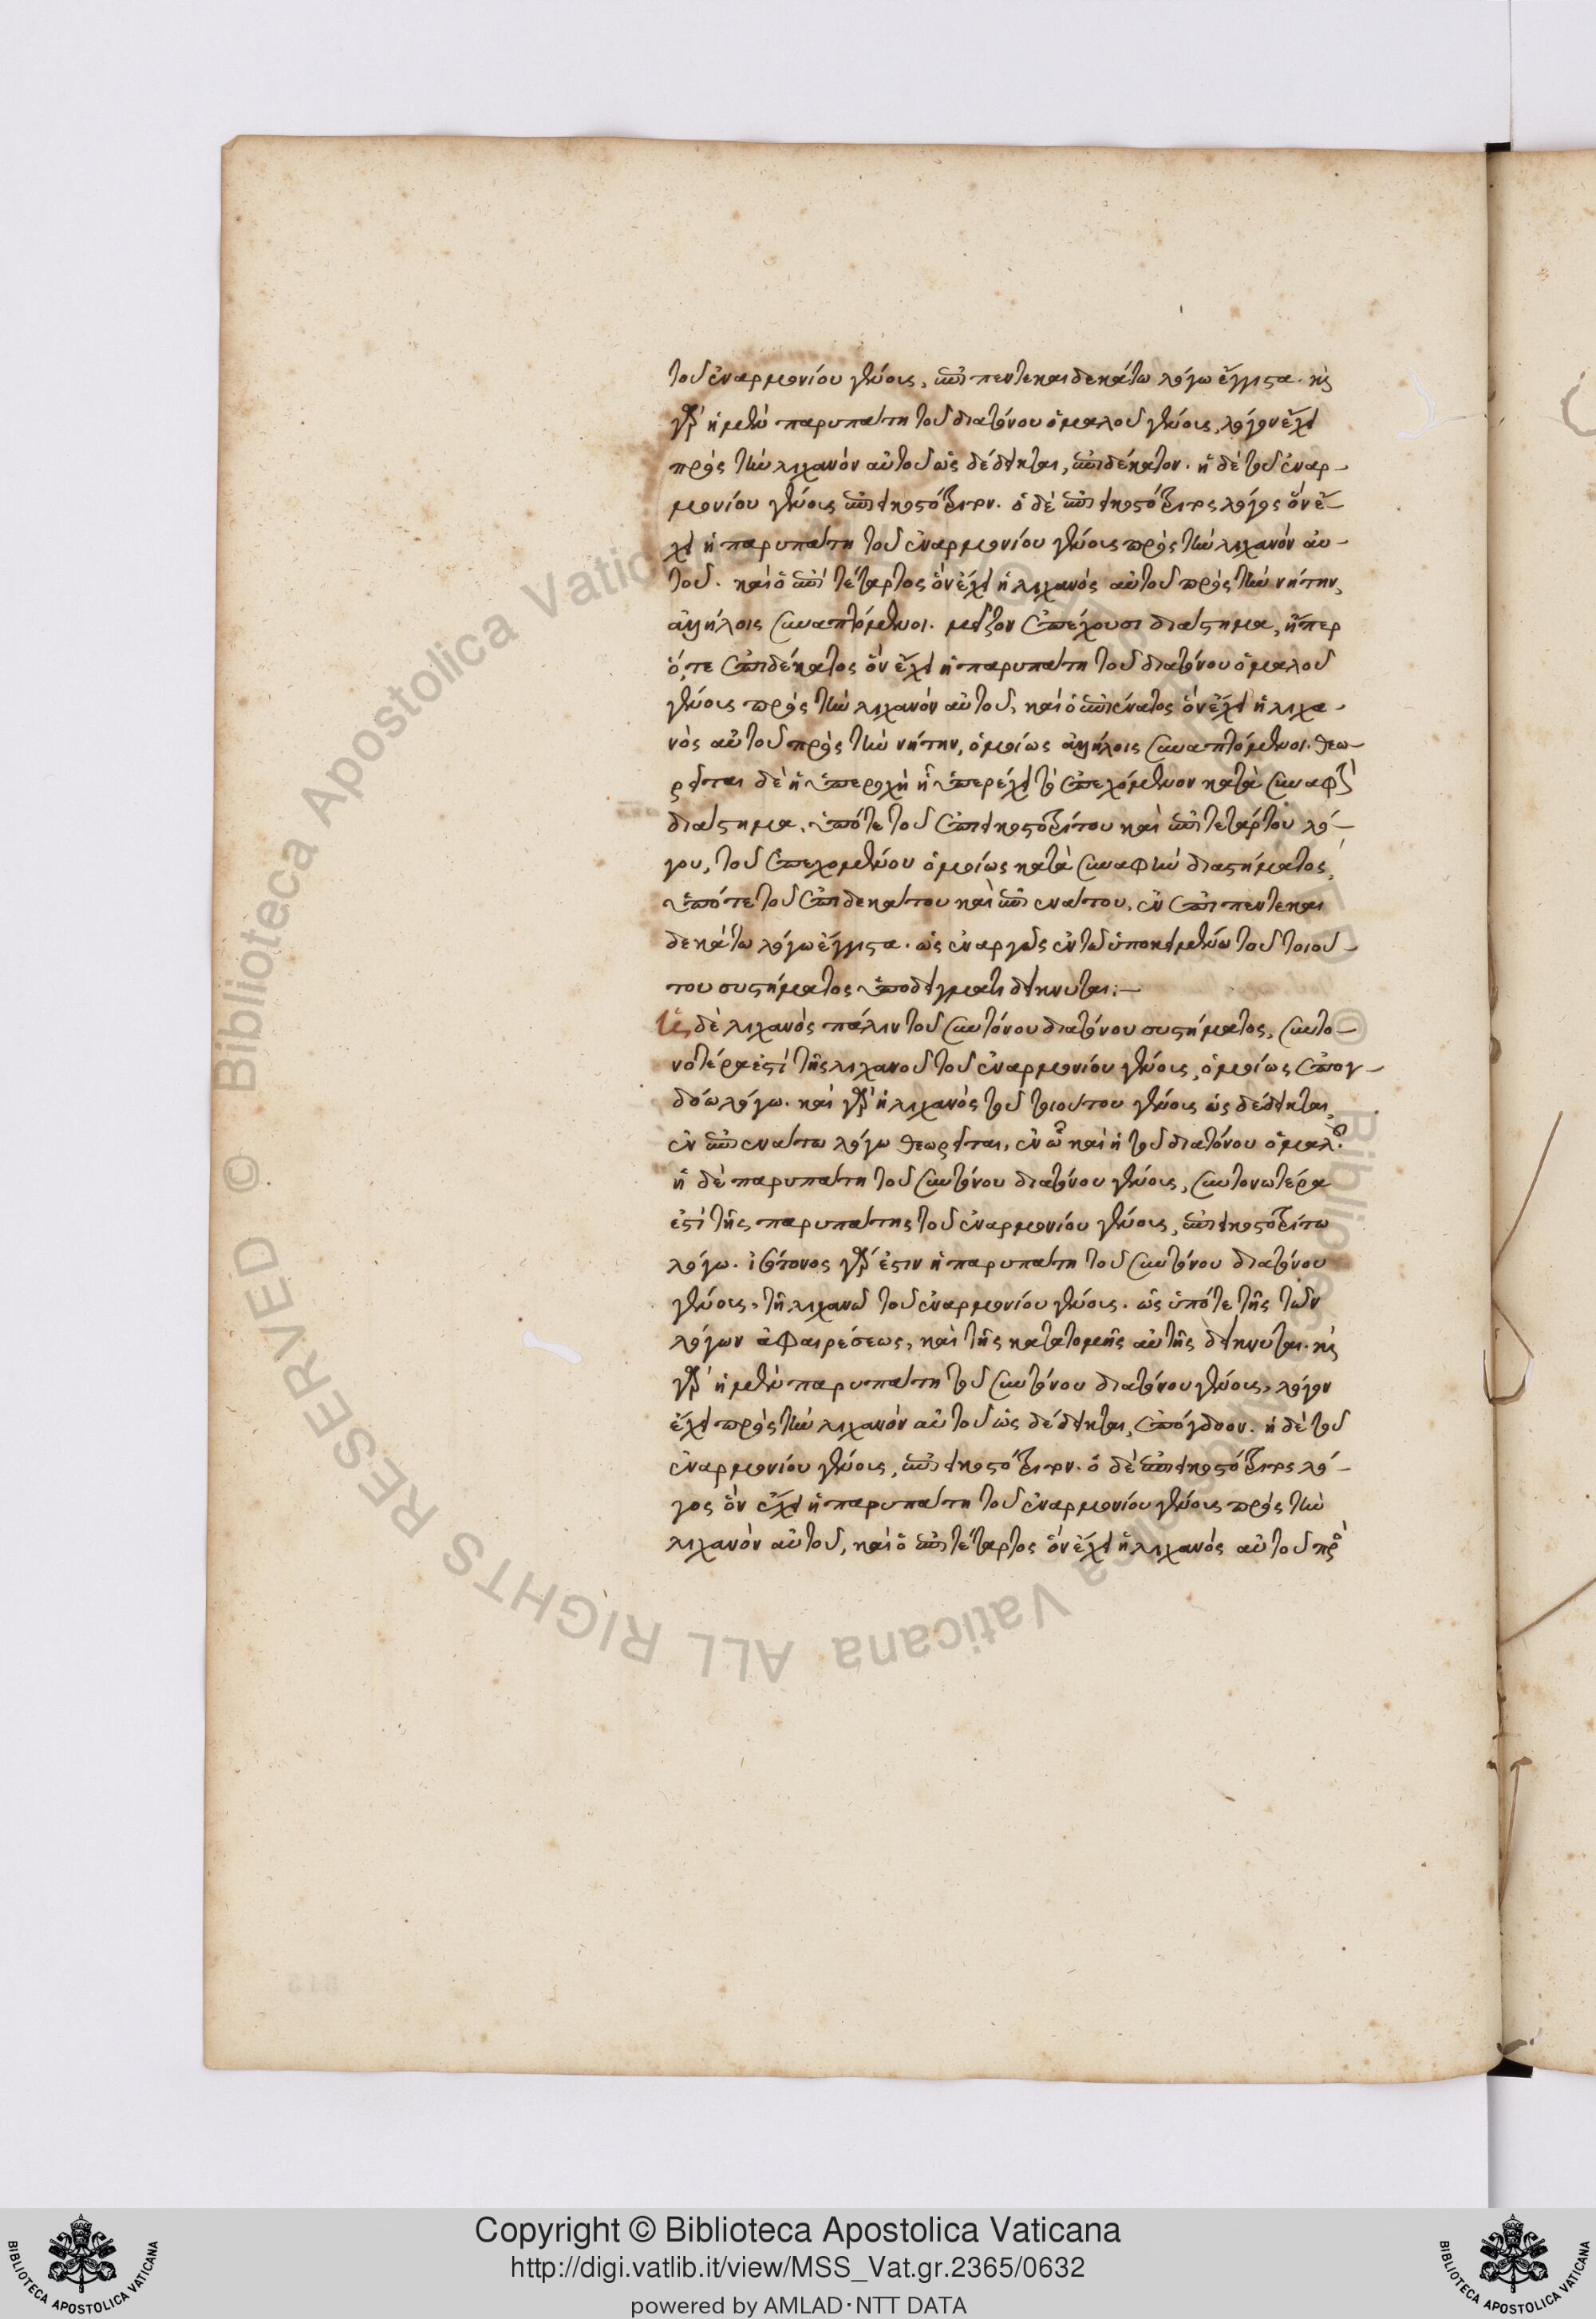 τοῦ ἐναρμονίου γένους, ἐπὶ πεντεκαιδεκάτω λόγω ἔγγιστα. καὶ
γὰρ ἡ μὲν παρυπάτη τοῦ διατόνου ὁμαλοῦ γένους, λόγον ἔχει
πρὸς τὴν λιχανὸν αὐτοῦ ὡς δέδεικται, ἐπιδέκατον. ἡ δὲ τοῦ ἐναρ-
μονίου γένους ἐπιεικοστότριτον. ὁ δὲ ἐπιεικοστότριτος λόγος ὃν ἔ-
χει ἡ παρυπάτη τοῦ ἐναρμονίου γένους πρὸς τὴν λιχανὸν αὐ-
τοῦ. καὶ ὁ ἐπιτέταρτος ὃν ἔχει ἡ λιχανὸς αὐτοῦ πρὸς τὴν νήτην,
ἀλλήλοις συναπτόμενοι. μεῖζον ἐπέχουσι διάστημα, ἤπερ
ὅ, τε ἐπιδέκατος ὃν ἔχει ἡ παρυπάτη τοῦ διατόνου ὁμαλοῦ
γένους πρὸς τὴν λιχανὸν αὐτοῦ, καὶ ὁ ἐπιένατος ὃν ἔχει ἡ λιχα-
νὸς αὐτοῦ πρὸς τὴν νήτην, ὁμοίως ἀλλήλοις συναπτόμενοι. θεω-
ρεῖται δὲ ἡ ὑπεροχὴ ἣ ὑπερέχει τὸ ἐπεχόμενον κατὰ συναφὴν
διάστημα, ὑπότε τοῦ ἐπιεικοστοτρίτου καὶ ἐπιτετάρτου λό-
γου, τοῦ ἐπεχομένου ὁμοίως κατὰ συναφὴν διαστήματος,
ὑπότε τοῦ ἐπιδεκάτου καὶ ἐπιενάτου, ἐν ἐπιπεντεκαι
δεκάτω λόγω ἔγγιστα. ὡς ἐναργῶς ἐν τῶ ὑποκειμένω τοῦ τοιού-
του συστήματος ὑποδείγματι δείκνυται:-
Ἡ δὲ λιχανὸς πάλιν τοῦ συντόνου διατόνου συστήματος, συντο-
νοτέρα ἐστὶ τῆς λιχανοῦ τοῦ ἐναρμονίου γένους, ὁμοίως ἐπογ-
δόω λόγω. καὶ γὰρ ἡ λιχανὸς τοῦ τοιούτου γένους ὡς δέδεικται,
ἐν ἐπιενάτω λόγω θεωρεῖται, ἐν ᾧ καὶ ἡ τοῦ διατόνου ὁμαλοῦ.
ἡ δὲ παρυπάτη τοῦ συντόνου διατόνου γένους, συντονωτέρα
ἐστὶ τῆς παρυπάτης τοῦ ἐναρμονίου γένους, ἐπιεικοστοτρίτω
λόγω. ἰσότονος γάρ ἐστιν ἡ παρυπάτη τοῦ συντόνου διατόνου
γένους, τῆ λιχανῶ τοῦ ἐναρμονίου γένους. ὡς ὑπότε τῆς τῶν
λόγων ἀφαιρέσεως, καὶ τῆς κατατομῆς αὐτῆς δείκνυται. καὶ
γὰρ ἡ μὲν παρυπάτη τοῦ συντόνου διατόνου γένους, λόγον
ἔχει πρὸς τὴν λιχανὸν αὐτοῦ ὡς δέδεικται, ἐπόγδοον. ἡ δὲ τοῦ
ἐναρμονίου γένους, ἐπιεικοστότριτον. ὁ δὲ ἐπιεικοστότριτος λό-
γος ὃν ἔχει ἡ παρυπάτη τοῦ ἐναρμονίου γένους πρὸς τὴν
λιχανὸν αὐτοῦ, καὶ ὁ ἐπιτέταρτος ὃν ἔχει ἡ λιχανὸς αὐτοῦ πρὸς
© Biblioteca Apostolica Vaticana ALL RIGHTS RESERVED
Copyright © Biblioteca Apostolica Vaticana
http://digi.vatlib.it/view/MSS_Vat.gr.2365/0632
powered by AMLAD·NTT DATA
BIBLIOTECA APOSTOLICA VATICANA
BIBLIOTECA APOSTOLICA VATICANA